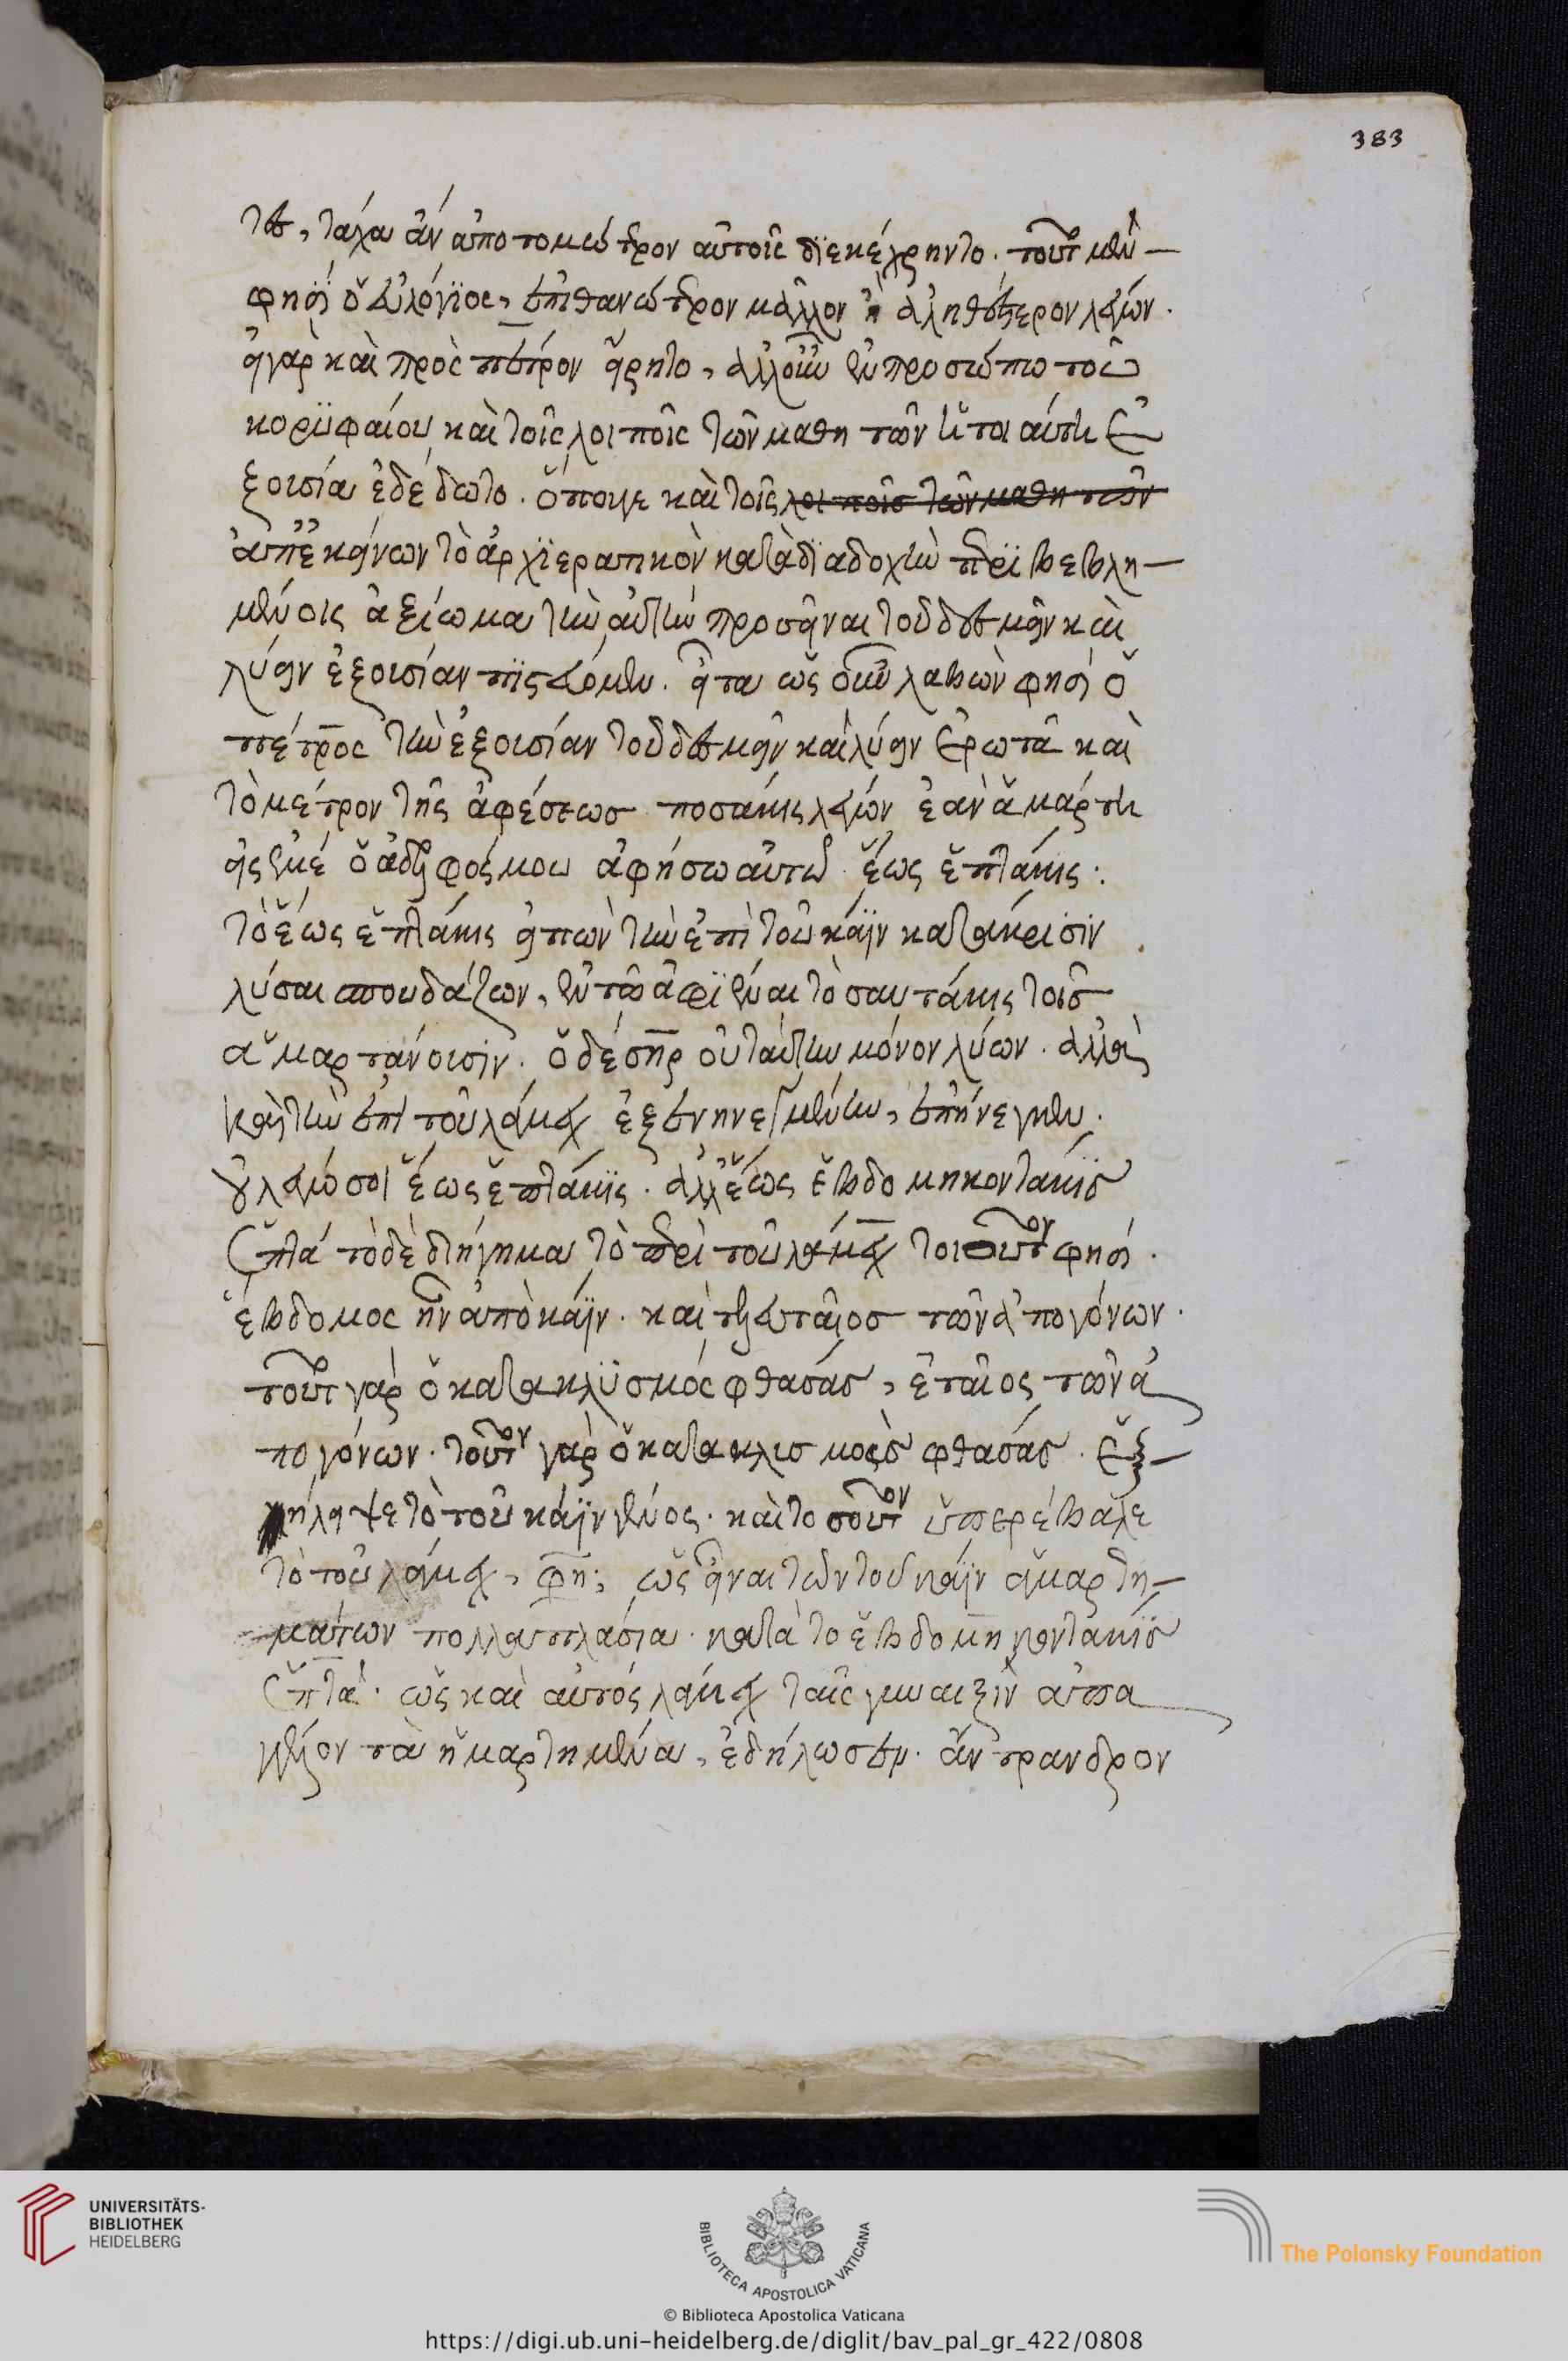 383
τες, τάχα ἂν ἀποτομώτερον αὐτοῖς διεκέχρηντο. τοῦτο μὲν
φησὶ ὁ εὐλόγιος, ἐπιθανώτερον μᾶλλον ἢ ἀληθέστερον λέγων.
εἰ γὰρ καὶ πρὸς πέτρον εἴρητο, ἀλλ' οὖν ἐν προσώπω τοῦ
κορυφαίου καὶ τοῖς λοιποῖς τῶν μαθητῶν ἡ τοιαύτη ἐ
ξουσία ἐδέδωτο. ὅπουγε καὶ τοῖς λοιποῖς τῶν μαθητῶν
ἀπ' ἐκείνων τὸ ἀρχϊερατικὸν κατὰ δϊαδοχὴν περϊβεβλη
μένοις ἀξίωμα τὴν αὐτὴν προσεῖναι τοῦ δεσμεῖν καὶ
λύειν ἐξουσίαν πϊστεύομεν. εἶτα ὡς οὖν λαβὼν φησὶ ὁ
πέτρος τὴν ἐξουσίαν τοῦ δεσμεῖν καὶ λύειν ἐρωτᾶ καὶ
τὸ μέτρον τῆς ἀφέσεως ποσάκις λέγων ἐὰν ἁμάρτη
εἰς ἐμέ ὁ ἀδελφός μου ἀφήσω αὐτῶ ἕως ἑπτάκις:
τὸ ἕως ἑπτάκις εἰπὼν τὴν ἐπὶ τοῦ κάϊν κατάκρισιν
λύσαι σπουδάζων, ἐν τῶ ἀφϊέναι τοσαυτάκις τοῖς
ἁμαρτάνουσιν. ὁ δέ σηρ οὐ ταύτην μόνον λύων. ἀλλὰ
καὶ τὴν ἐπὶ τοῦ λάμεχ ἐξενηνεγμένην, ἐπήνεγκεν.
οὐ λέγω σοι ἕως ἑπτάκϊς. ἀλλ' ἕως ἑβδομηκοντάκϊς
ἑπτά τὸ δὲ διήγημα τὸ περὶ τοῦ λάμεχ τοιοῦτον φησί.
ἕβδομος ἦν ἀπὸ κάϊν. καὶ τελευταῖος τῶν ἀπογόνων.
τοῦτο γὰρ ὁ κατακλϋσμός φθασάς, ἑταῖος τῶν ἀ
πογόνων. τοῦτον γὰρ ὁ κατακλισμοὲς φθασάς. ἐξ
ήλειψε τὸ τοῦ κάϊν γένος. καὶ τοσοῦτον ὑπερέβαλε
τὸ τοῦ λάμεχ, φη; ὡς εἶναι τῶν τοῦ κάϊν ἁμαρτη
μάτων πολλαπλάσια. κατὰ το ἑβδομηκοντάκϊς
ἑπτά. ὡς καὶ αὐτός λάμεχ ταῖς γυναιξὶν ἀπα
γγέλλων τὰ ἡμαρτημένα, ἐδήλωσεν. ἄντρα νδρον
UNIVERSITÄTS-
BIBLIOTHEK
HEIDELBERG
BIBLIOTECA APOSTOLICA VATICANA
The Polonsky Foundation
© Biblioteca Apostolica Vaticana
https://digi.ub.uni-heidelberg.de/diglit/bav_pal_gr_422/0808